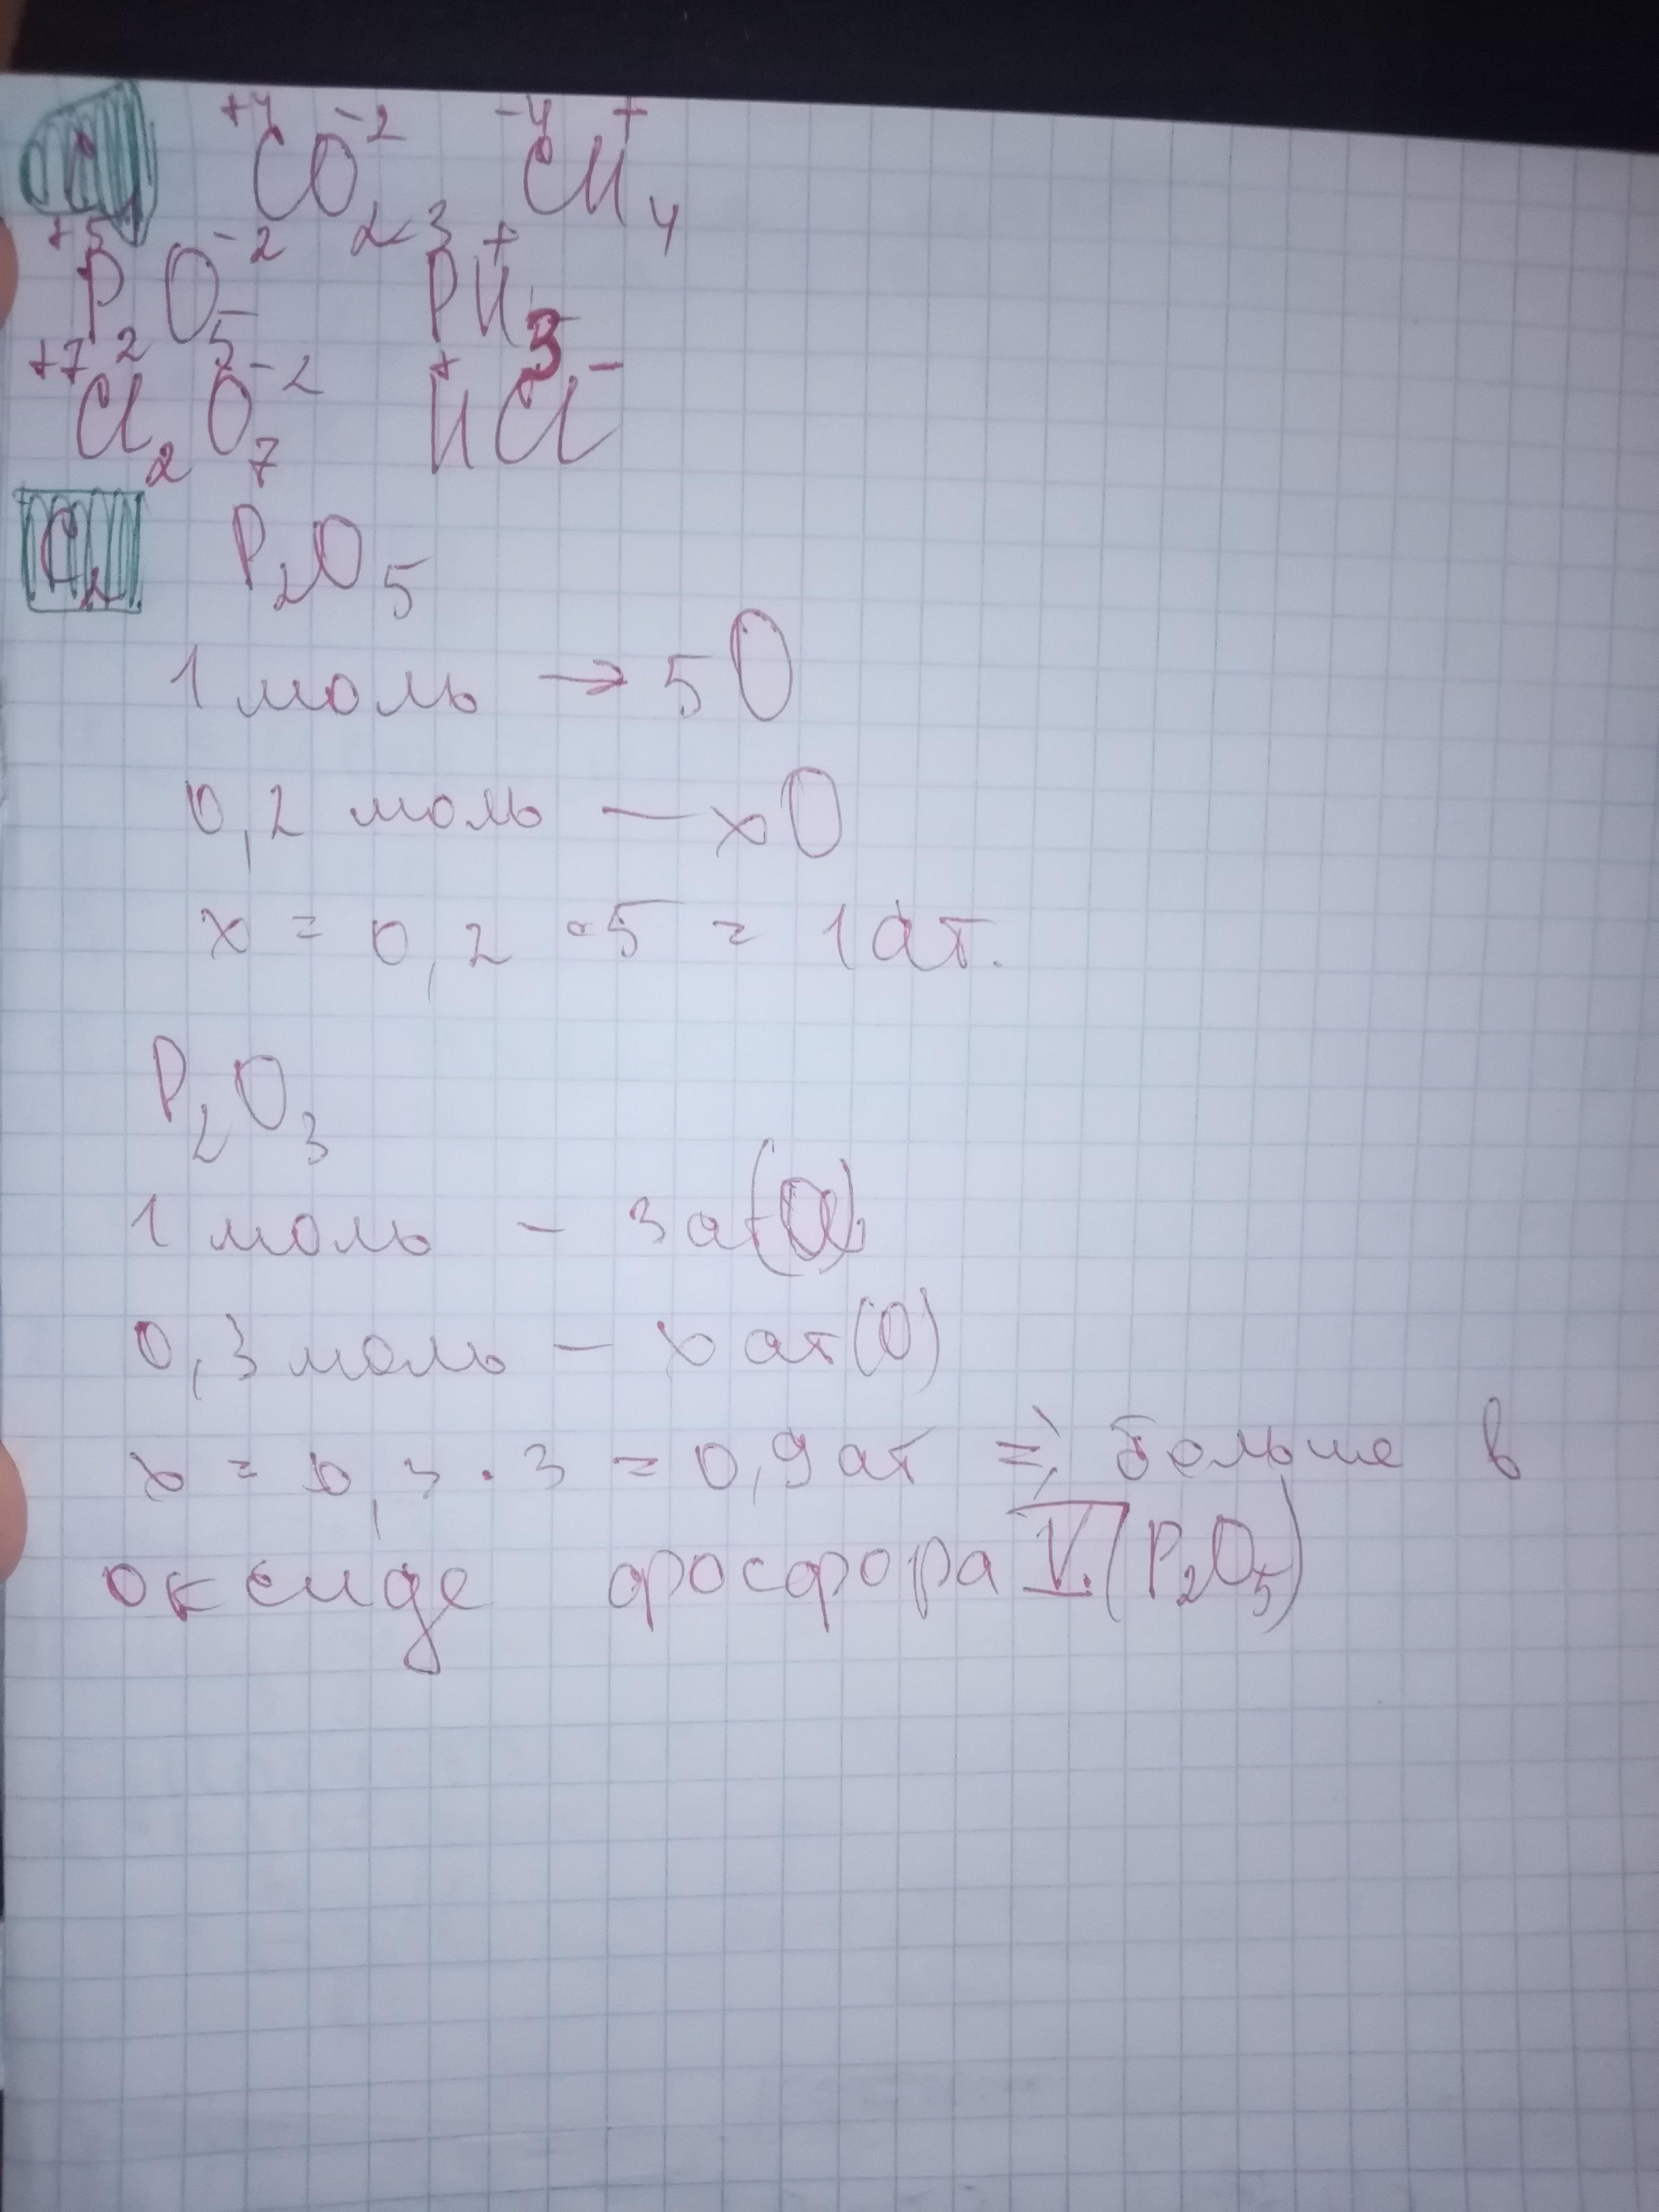 C1 +4 -2 -4 +
CO2 CH4
+5 -2 -3 +
P2O5 PH3
+7 -2 + -
Cl2O7 HCl
C2 P2O5
1 моль → 5O
0,2 моль — xO
x = 0,2 · 5 = 1 ат.
P2O3
1 моль - 3 ат(O)
0,3 моль - x ат(O)
x = 0,3 · 3 = 0,9 ат ⇒ больше в
оксиде фосфора V. (P2O5)